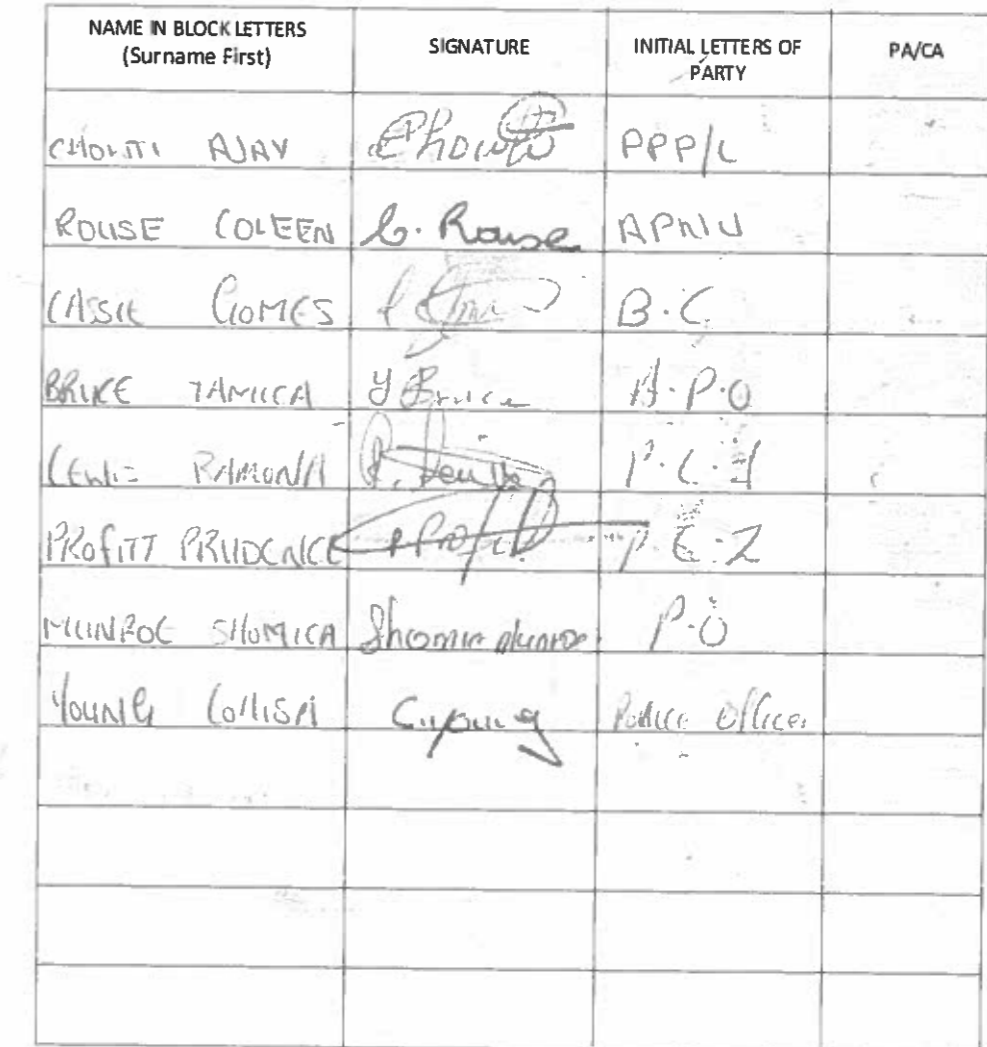 NAME IN BLOCK LETTERS (Surname First) SIGNATURE INITIAL LETTERS OF PARTY PA/CA
AJAY PPP/C
ROUSE COLEEN C. Rouse APNU
CASSIE GOMES B.C.
BRUCE TAMICA Y Bruce A.P.O
LEWIS RAMONA R. Lewis P.C.1
PROFITT PRUDENCE P Profitt P.C.2
MUNROE SHOMICA Shomica Munroe P.O
YOUNG C. Young Police Officer